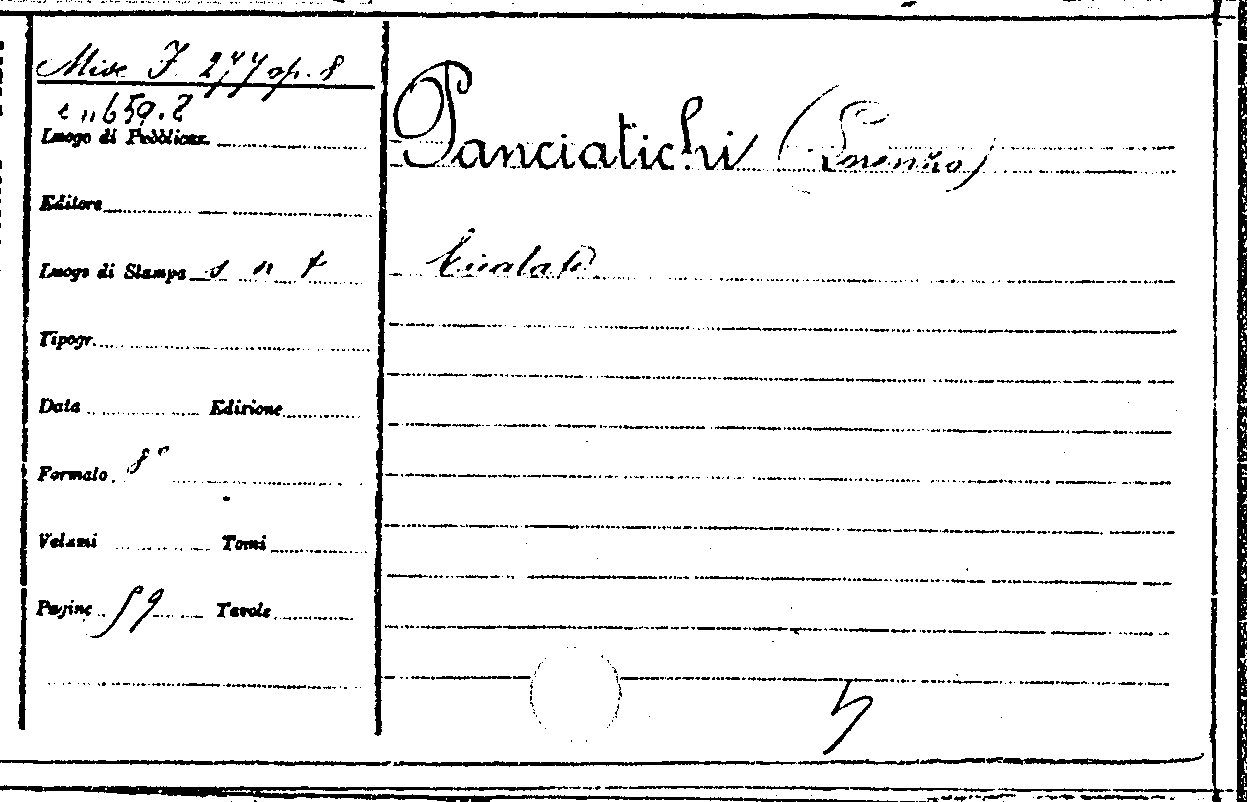 Misc I 277 op. 8
e n 659.2
Luogo di Pubblicaz.
Editore
Luogo di Stampa s n t
Tipogr.
Data Edizione
Formato 8°
Volumi Tomi
Pagine 59 Tavole
Panciatichi (Lorenzo)
Cicalate